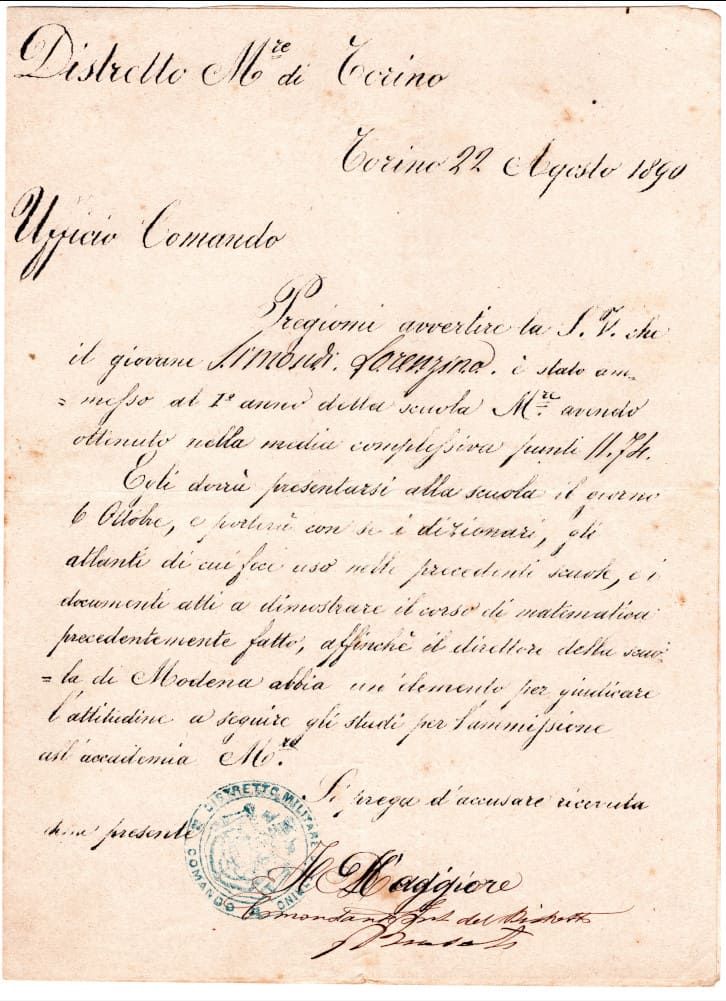 Distretto M.re di Torino
Torino 22 Agosto 1890
Ufficio Comando
Pregiomi avvertire la S. V. che
il giovane Simondi Lorenzino. è stato am=
=messo al 1° anno della scuola M.re avendo
ottenuto nella media complessiva punti 11.74.
Egli dovrà presentarsi alla scuola il giorno
6 Ottobre, e porterà con se i dizionari, gli
atlanti di cui feci uso nelle precedenti scuole, e i
documenti atti a dimostrare il corso di matematica
precedentemente fatto, affinchè il direttore della scuo=
=la di Modena abbia un elemento per giudicare
l'attitudine a seguire gli studi per l'ammissione
all'accademia M.re
Si prega d'accusare ricevuta
presente
DISTRETTO MILITARE
COMANDO
Il Maggiore
Comandante Int. del Distretto